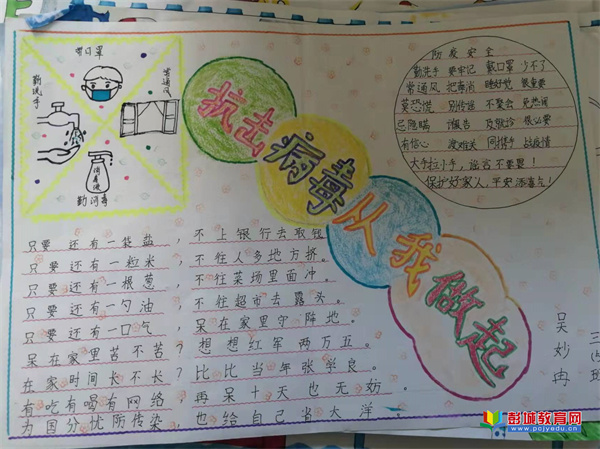 带口罩
勤洗手
常通风
消毒液
勤消毒
抗击病毒从我做起
防疫安全
勤洗手 要牢记 戴口罩 少不了
常通风 把毒消 睡好觉 很重要
莫恐慌 别传谣 不聚会 免热闹
忌隐瞒 及就诊 很必要
有信心 渡难关 同携手 战疫情
大手拉小手，谣言不要要！
保护好家人，平安添喜气！
只要还有一袋盐，不上银行去取钱。
只要还有一粒米，不往人多地方挤。
只要还有一根葱，不往菜场里面冲。
只要还有一勺油，不往超市去露头。
只要还有一口气，呆在家里守阵地。
呆在家里苦不苦？想想红军两万五。
在家时间长不长？比比当年张学良。
有吃有喝有网络，再呆十天也无妨。
为国分忧防传染，也给自己省大洋！
吴妙冉
三
班
彭城教育网
www.pcjyedu.cn